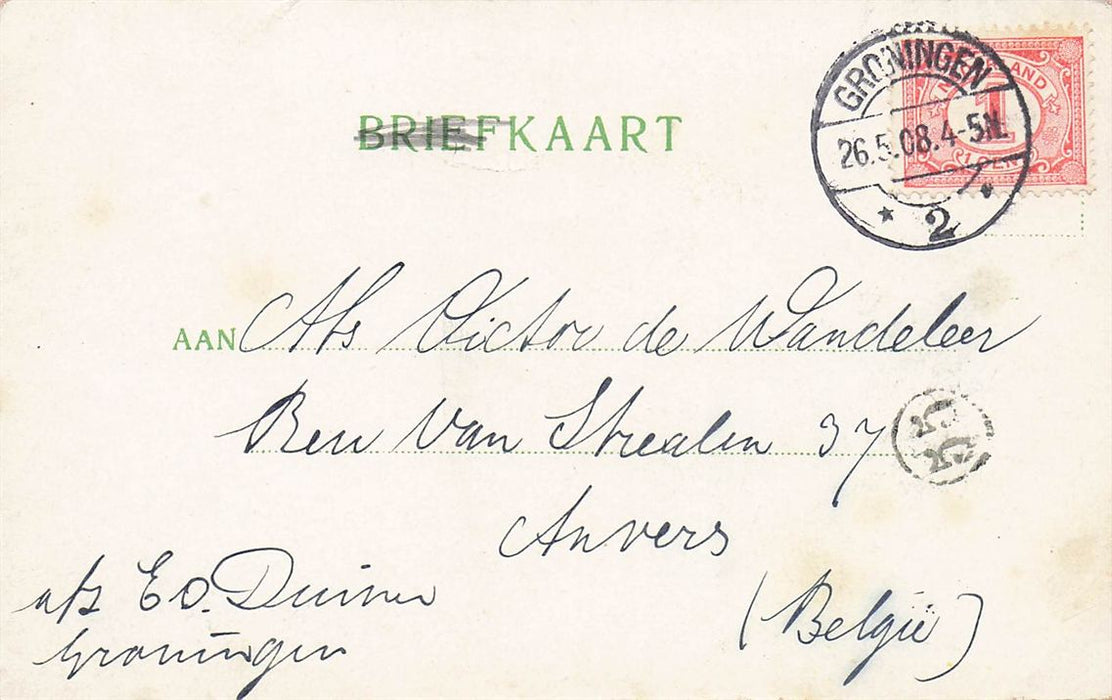 BRIEFKAART
GRONINGEN
26.5.08.4-5N.
2
NEDERLAND
1
1 CENT
AAN Mr Victor de Wandeleer
Rue Van Straalen 37
Anvers
(België)
afz Ed. Duiner
Groningen